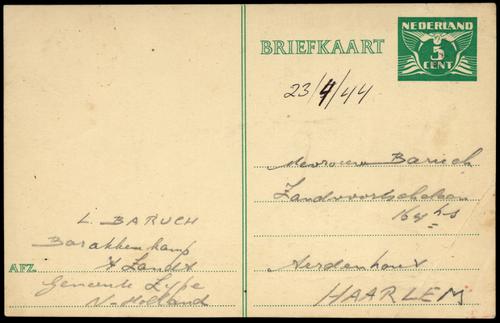 NEDERLAND
5
CENT
BRIEFKAART
23/4/44
Mevrouw Baruch
Zandvoortschelaan
Aerdenhout
HAARLEM
L. BARUCH
Barakkenkamp
't Zandt
AFZ.
Gemeente Zype
N-Holland